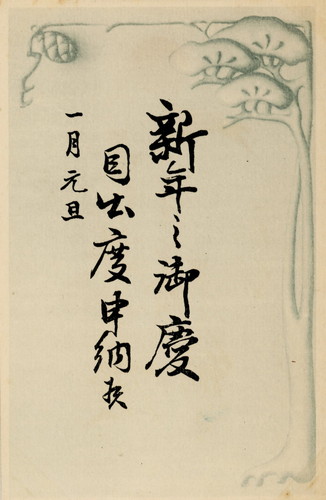 新年之御慶
目出度申納候
一月元旦